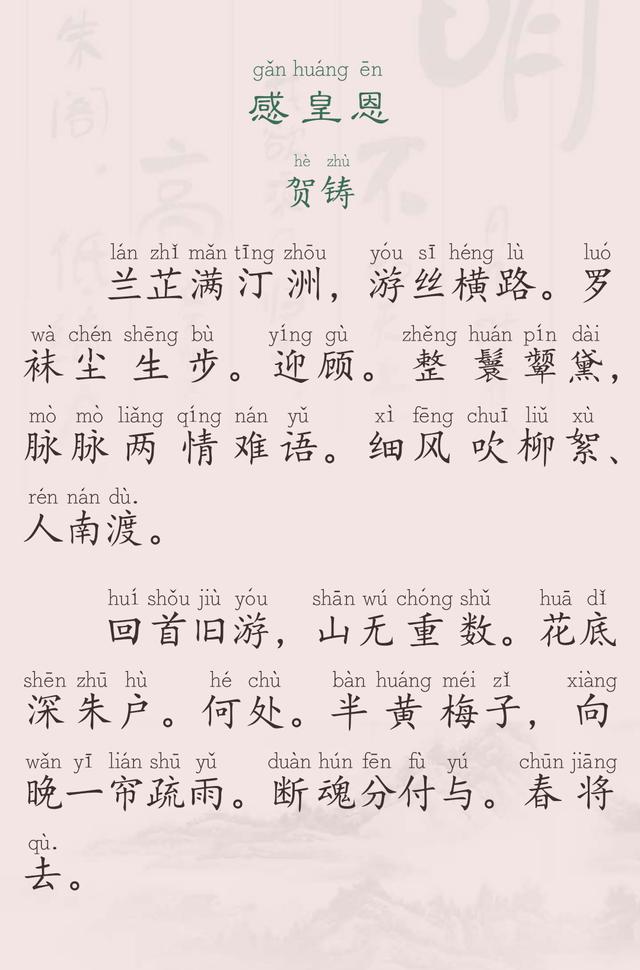 gǎn huáng ēn
感皇恩
hè zhù
贺铸
lán zhǐ mǎn tīng zhōu yóu sī héng lù luó
兰芷满汀洲，游丝横路。罗
wà chén shēng bù yíng gù zhěng huán pín dài
袜尘生步。迎顾。整鬟颦黛，
mò mò liǎng qíng nán yǔ xì fēng chuī liǔ xù
脉脉两情难语。细风吹柳絮、
rén nán dù.
人南渡。
huí shǒu jiù yóu shān wú chóng shǔ huā dǐ
回首旧游，山无重数。花底
shēn zhū hù hé chù bàn huáng méi zǐ xiàng
深朱户。何处。半黄梅子，向
wǎn yī lián shū yǔ duàn hún fēn fù yú chūn jiāng
晚一帘疏雨。断魂分付与。春将
qù.
去。